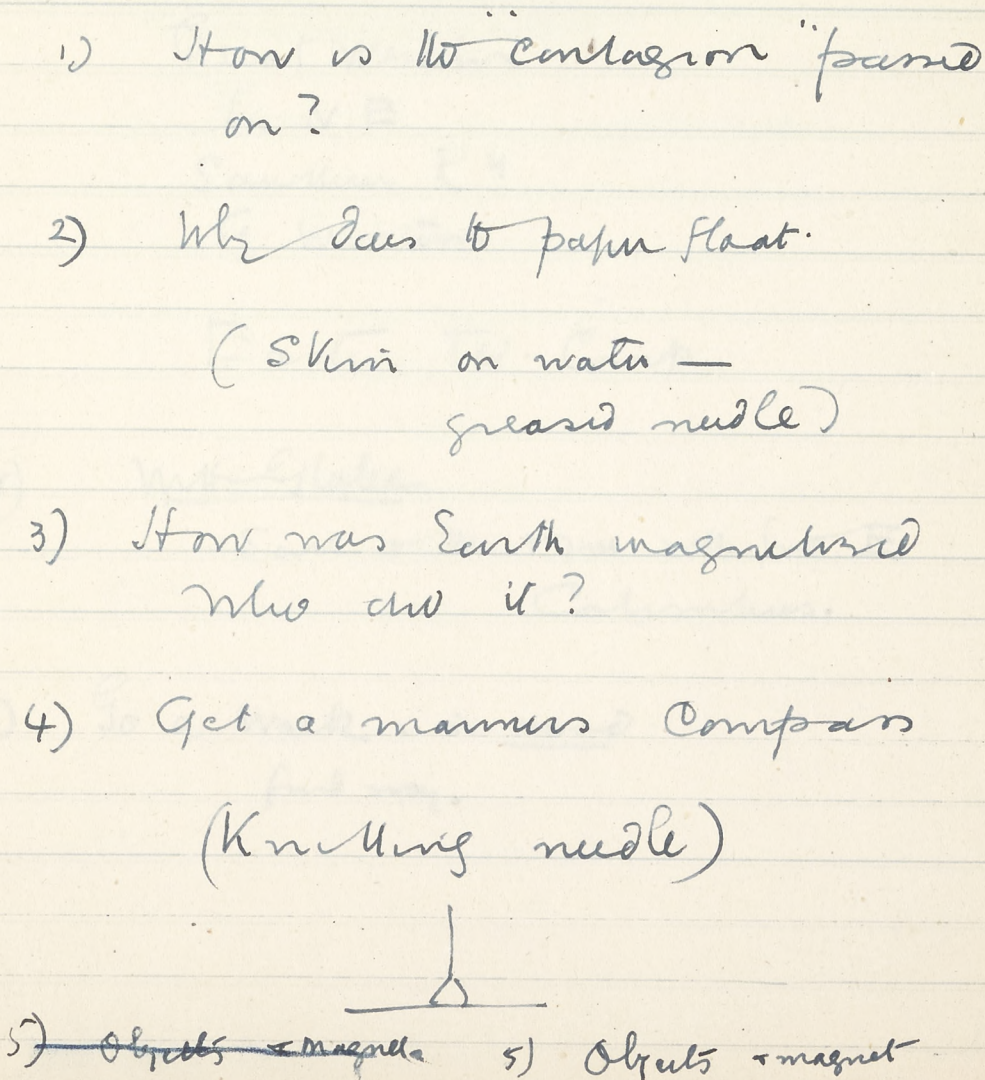 1) How is the "contagion" passed
on?
2) Why does the paper float.
(Skin on water —
greased needle)
3) How was Earth magnetised
Who did it?
4) Get a mariners Compass
(Knitting needle)
5) Objects & magnets 5) Objects & magnet